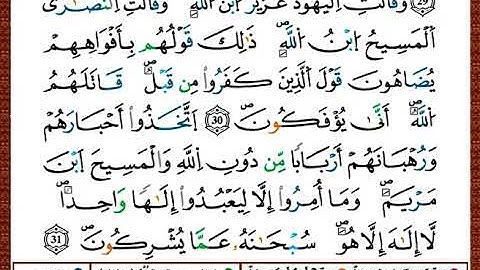 (29) وَقَالَتِ الْيَهُودُ عُزَيْرٌ ابْنُ اللَّهِ وَقَالَتِ النَّصَارَى
الْمَسِيحُ ابْنُ اللَّهِ ذَٰلِكَ قَوْلُهُم بِأَفْوَاهِهِمْ
يُضَاهُونَ قَوْلَ الَّذِينَ كَفَرُوا مِن قَبْلُ قَاتَلَهُمُ
اللَّهُ أَنَّىٰ يُؤْفَكُونَ (30) اتَّخَذُوا أَحْبَارَهُمْ
وَرُهْبَانَهُمْ أَرْبَابًا مِّن دُونِ اللَّهِ وَالْمَسِيحَ ابْنَ
مَرْيَمَ وَمَا أُمِرُوا إِلَّا لِيَعْبُدُوا إِلَٰهًا وَاحِدًا
لَّا إِلَٰهَ إِلَّا هُوَ سُبْحَانَهُ عَمَّا يُشْرِكُونَ (31)